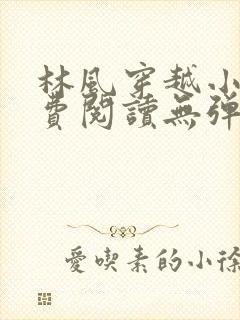 林風穿越小
費閱讀無彈
愛喫素的小徐